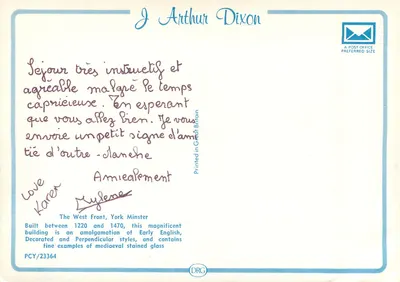 J Arthur Dixon
A POST OFFICE
PREFERRED SIZE
Sejour très instructif et
agréable malgré le temps
capricieuse. En esperant
que vous allez bien. Je vous
envoie un petit signe d'ami
tié d'outre-Manche
Amicalement
Love
Karen
Mylene
Printed in Great Britain
The West Front, York Minster
Built between 1220 and 1470, this magnificent
building is an amalgamation of Early English,
Decorated and Perpendicular styles, and contains
fine examples of mediaeval stained glass
PCY/23364
DRG